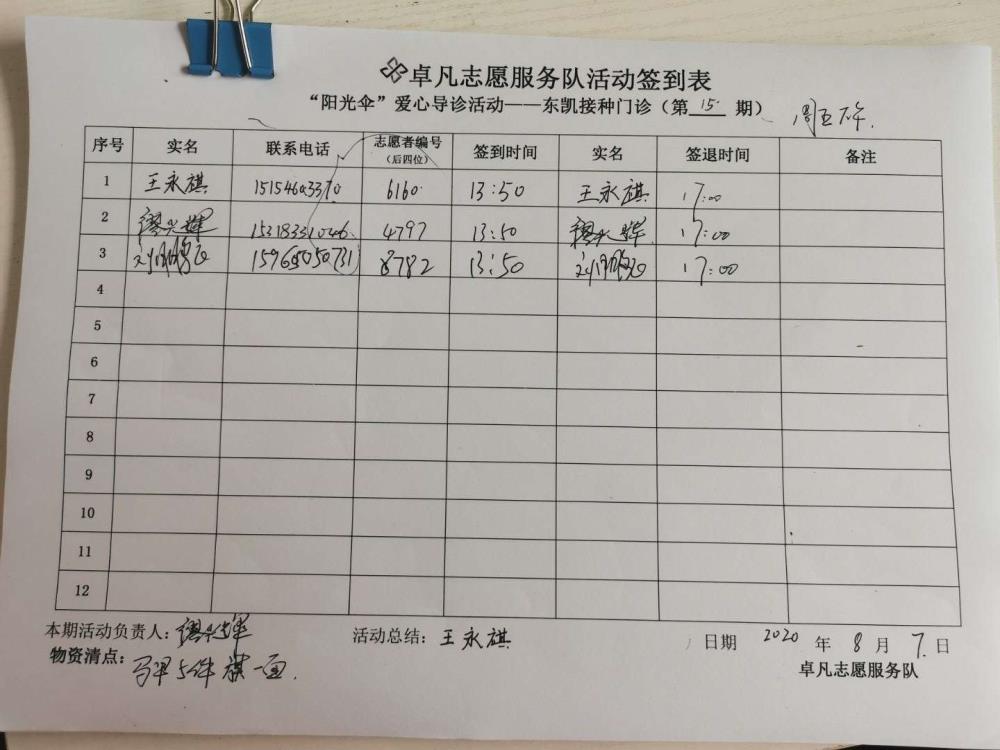 卓凡志愿服务队活动签到表
“阳光伞”爱心导诊活动——东凯接种门诊（第 15 期） 周五下午.
序号 实名 联系电话 志愿者编号（后四位） 签到时间 实名 签退时间 备注
1 王永祺 15154603370 6160 13:50 王永祺 17:00
2 15318331046 4797 13:50 17:00
3 8782 13:50 17:00
4
5
6
7
8
9
10
11
12
本期活动负责人: 活动总结: 王永祺 日期 2020 年 8 月 7 日
物资清点: 马甲5件 旗一面.
卓凡志愿服务队